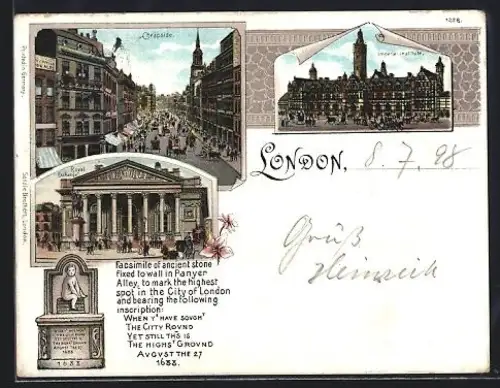 Cheapside.
Imperial Institute.
Printed in Germany.
Royal
Exchange.
LONDON, 8.7.98
Gruß
Heinrich
Facsimile of ancient stone
fixed to wall in Panyer
Alley, to mark the highest
spot in the City of London
and bearing the following
inscription:
WHEN Yᵉ HAVE SOVGHᵀ
THE CITY ROVND
YET STILL THˢIS
THE HIGHSᵀ GROVND
AVGVST THE 27
1688.
AVGVST THE 27
1688
1688